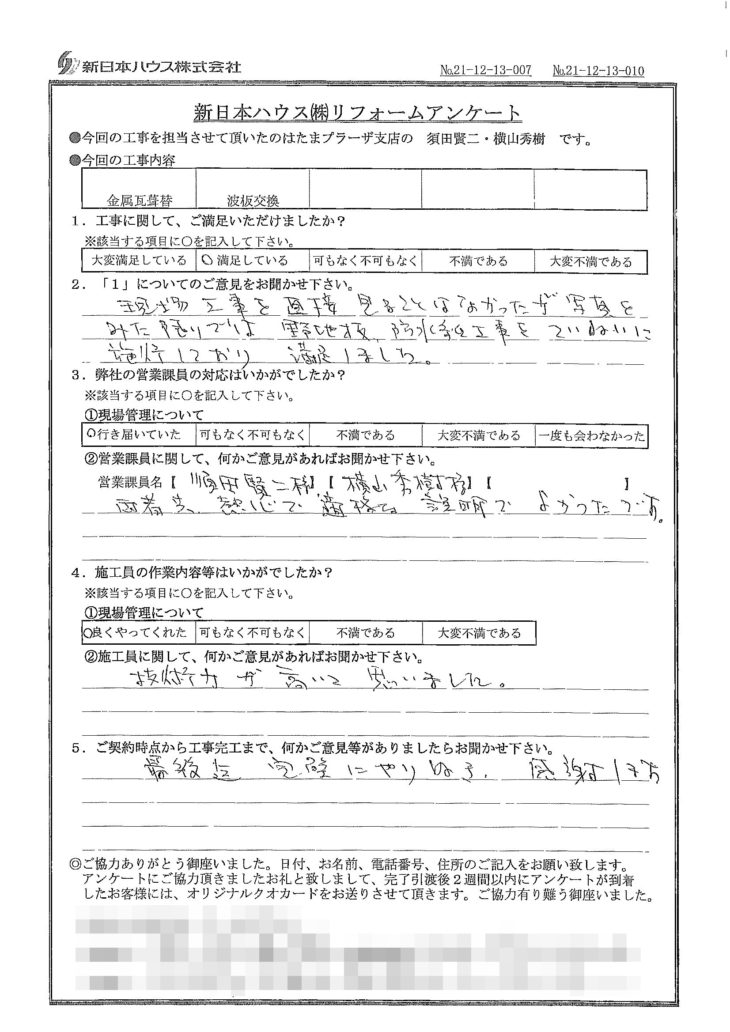 新日本ハウス株式会社
№21-12-13-007 №21-12-13-010
新日本ハウス㈱リフォームアンケート
●今回の工事を担当させて頂いたのはたまプラーザ支店の 須田賢二・横山秀樹 です。
●今回の工事内容
金属瓦葺替 波板交換
1．工事に関して、ご満足いただけましたか？
※該当する項目に○を記入して下さい。
大変満足している ○満足している 可もなく不可もなく 不満である 大変不満である
2．「1」についてのご意見をお聞かせ下さい。
現場工事を直接見ることはなかったが写真を
みた限りでは野地板、防水係工事をていねいに
施行しており満足しました。
3．弊社の営業課員の対応はいかがでしたか？
※該当する項目に○を記入して下さい。
①現場管理について
○行き届いていた 可もなく不可もなく 不満である 大変不満である 一度も会わなかった
②営業課員に関して、何かご意見があればお聞かせ下さい。
営業課員名【 須田賢二様】【 横山秀樹様】【 】
両者共、熱心で 説明で よかったです。
4．施工員の作業内容等はいかがでしたか？
※該当する項目に○を記入して下さい。
①現場管理について
○良くやってくれた 可もなく不可もなく 不満である 大変不満である
②施工員に関して、何かご意見があればお聞かせ下さい。
技術力が高いと思いました。
5．ご契約時点から工事完工まで、何かご意見等がありましたらお聞かせ下さい。
最後迄 完璧にやり 感謝します
◎ご協力ありがとう御座いました。日付、お名前、電話番号、住所のご記入をお願い致します。
アンケートにご協力頂きましたお礼と致しまして、完了引渡後2週間以内にアンケートが到着
したお客様には、オリジナルクオカードをお送りさせて頂きます。ご協力有り難う御座いました。